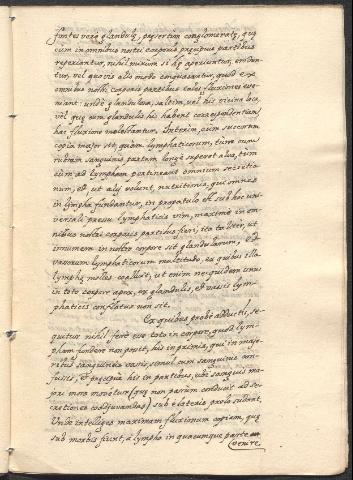 fontes vero glandulę, pręsertim conglomeratę, quę
cum in omnibus nostri corporis pręcipuis partibus
reperiantur, nihil mirum si hę aperiantur, erodan
tur, vel quovis alio modo conquassantur, quod ex
omnibus nostri corporis partibus tales fluxiones eve-
niant: unde glandulosa, saltem, vel his vicina loca,
vel quę cum glandulis his habent correspondentiam,
hac fluxione molestantur. Interim, cum succorum
copia major sit, quàm lymphaticorum, tum cum
ruborum sanguinis partem longè superet alva, tum
cum ad lympham pertineant omnium secretio
num, et, ut alij volunt, nutritionis, qui omnes
in lympha fundantur, in propatulo est sub hac uni-
versali pressu lymphaticis vim, maximè in om
nibus nostri corporis partibus fieri, ita ta liter, ut
innumera in nostro corpore sit glandularum, et
vasorum lymphaticorum multitudo, ex quibus illa
lymphę moles coalluit, ut enim nequidem unus
in toto corpore apex, ex glandulis, et vasis lym-
phaticis conflatus non sit.
Ex quibus probè adducti, se-
quitur nihil ferè esse toto in corpore, quod lym-
pham fundere non possit, his in primis, quę in majo-
ribus sanguineis vasis, simul cum sanguine con-
fusis, et pręcipuè his in partibus, ubi sanguis ma-
jori mora movetur (quę non parùm conducit ad se-
cretiones coadjuvandas) sub elaterio prelo sudant.
Unde intelliges maximam fluxionum copiam, quę
sub morbis fiunt, à lympha in quacumque parte
venire